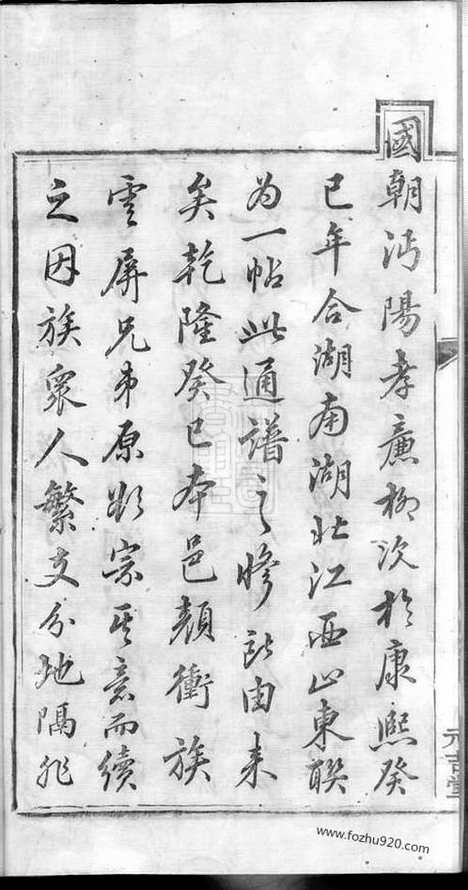 國朝沔陽孝廉柳次於康熙癸
巳年合湖南湖北江西山東聯
为一帖此通譜之修所由来
矣乾隆癸巳本邑顏衝族
雲屏兄弟原欲宗其意而續
之因族衆人繁支分地隔非
元吉堂
www.fozhu920.com